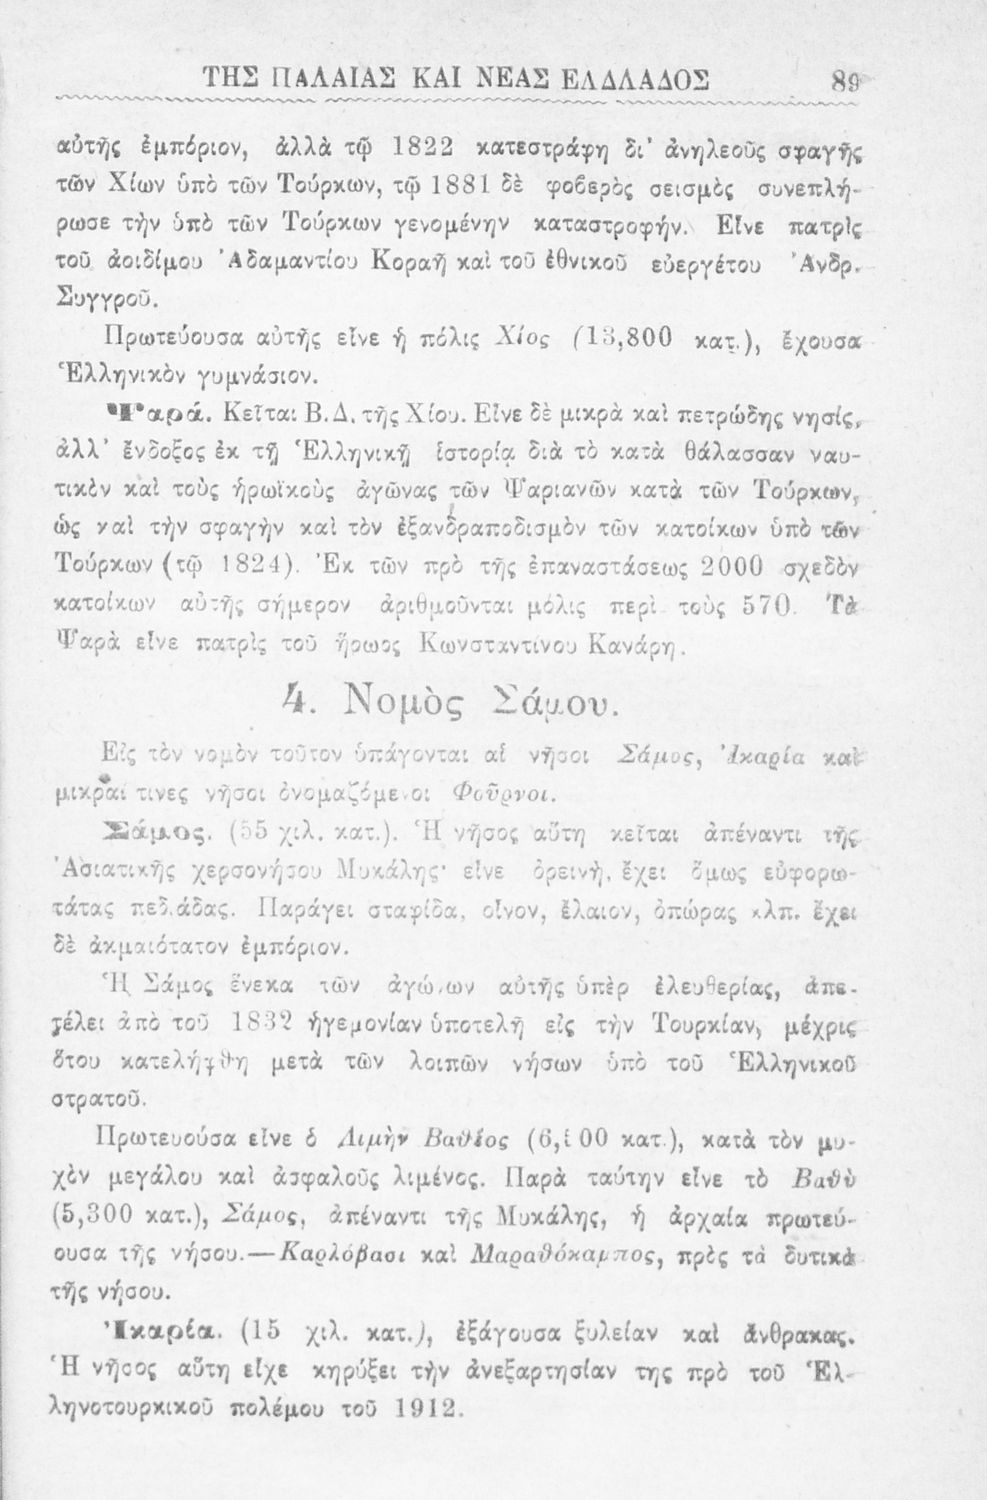 ΤΗΣ ΠΑΛΑΙΑΣ ΚΑΙ ΝΕΑΣ ΕΛΔΛΑΔΟΣ 89
αὐτῆς ἐμπόριον, ἀλλὰ τῷ 1822 κατεστράφη δι' ἀνηλεοῦς σφαγῆς
τῶν Χίων ὑπὸ τῶν Τούρκων, τῷ 1881 δὲ φοβερὸς σεισμὸς συνεπλή-
ρωσε τὴν ὑπὸ τῶν Τούρκων γενομένην καταστροφήν. Εἶνε πατρὶς
τοῦ ἀοιδίμου Ἀδαμαντίου Κοραῆ καὶ τοῦ ἐθνικοῦ εὐεργέτου Ἀνδρ.
Συγγροῦ.
Πρωτεύουσα αὐτῆς εἶνε ἡ πόλις Χίος (13,800 κατ.), ἔχουσα
Ἑλληνικὸν γυμνάσιον.
Ψαρά. Κεῖται Β.Δ. τῆς Χίου. Εἶνε δὲ μικρὰ καὶ πετρώδης νησίς,
ἀλλ' ἔνδοξος ἐκ τῇ Ἑλληνικῇ ἱστορίᾳ διὰ τὸ κατὰ θάλασσαν ναυ-
τικὸν καὶ τοὺς ἡρωϊκοὺς ἀγῶνας τῶν Ψαριανῶν κατὰ τῶν Τούρκων,
ὡς καὶ τὴν σφαγὴν καὶ τὸν ἐξανδραποδισμὸν τῶν κατοίκων ὑπὸ τῶν
Τούρκων (τῷ 1824). Ἐκ τῶν πρὸ τῆς ἐπαναστάσεως 2000 σχεδὸν
κατοίκων αὐτῆς σήμερον ἀριθμοῦνται μόλις περὶ τοὺς 570. Τὰ
Ψαρὰ εἶνε πατρὶς τοῦ ἥρωος Κωνσταντίνου Κανάρη.
4. Νομὸς Σάμου.
Εἰς τὸν νομὸν τοῦτον ὑπάγονται αἱ νῆσοι Σάμος, Ἰκαρία καὶ
μικραί τινες νῆσοι ὀνομαζόμενοι Φοῦρνοι.
Σάμος. (55 χιλ. κατ.). Ἡ νῆσος αὕτη κεῖται ἀπέναντι τῆς
Ἀσιατικῆς χερσονήσου Μυκάλης· εἶνε ὀρεινὴ, ἔχει ὅμως εὐφορω-
τάτας πεδιάδας. Παράγει σταφίδα, οἶνον, ἔλαιον, ὀπώρας κλπ. ἔχει
δὲ ἀκμαιότατον ἐμπόριον.
Ἡ Σάμος ἕνεκα τῶν ἀγώνων αὐτῆς ὑπὲρ ἐλευθερίας, ἀπε-
τέλει ἀπὸ τοῦ 1832 ἡγεμονίαν ὑποτελῆ εἰς τὴν Τουρκίαν, μέχρις
ὅτου κατελήφθη μετὰ τῶν λοιπῶν νήσων ὑπὸ τοῦ Ἑλληνικοῦ
στρατοῦ.
Πρωτευούσα εἶνε ὁ Λιμὴν Βαθέος κατ.), κατὰ τὸν μυ-
χὸν μεγάλου καὶ ἀσφαλοῦς λιμένος. Παρὰ ταύτην εἶνε τὸ Βαθὺ
(5,300 κατ.), Σάμος, ἀπέναντι τῆς Μυκάλης, ἡ ἀρχαία πρωτεύ-
ουσα τῆς νήσου.—Καρλόβασι καὶ Μαραθόκαμπος, πρὸς τὰ δυτικὰ
τῆς νήσου.
Ἰκαρία. (15 χιλ. κατ.), ἐξάγουσα ξυλείαν καὶ ἄνθρακας.
Ἡ νῆσος αὕτη εἶχε κηρύξει τὴν ἀνεξαρτησίαν της πρὸ τοῦ Ἑλ-
ληνοτουρκικοῦ πολέμου τοῦ 1912.